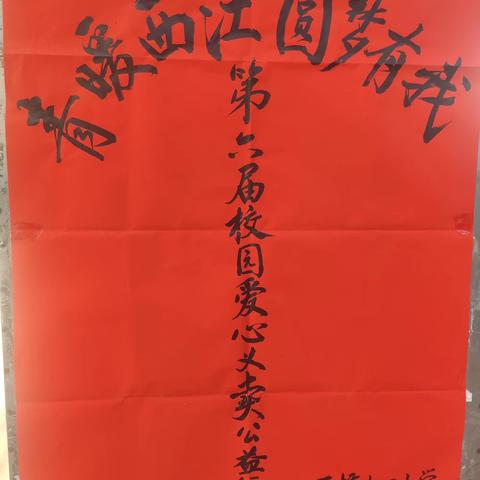 青紫西江圆梦有我
第六届校园爱心义卖公益